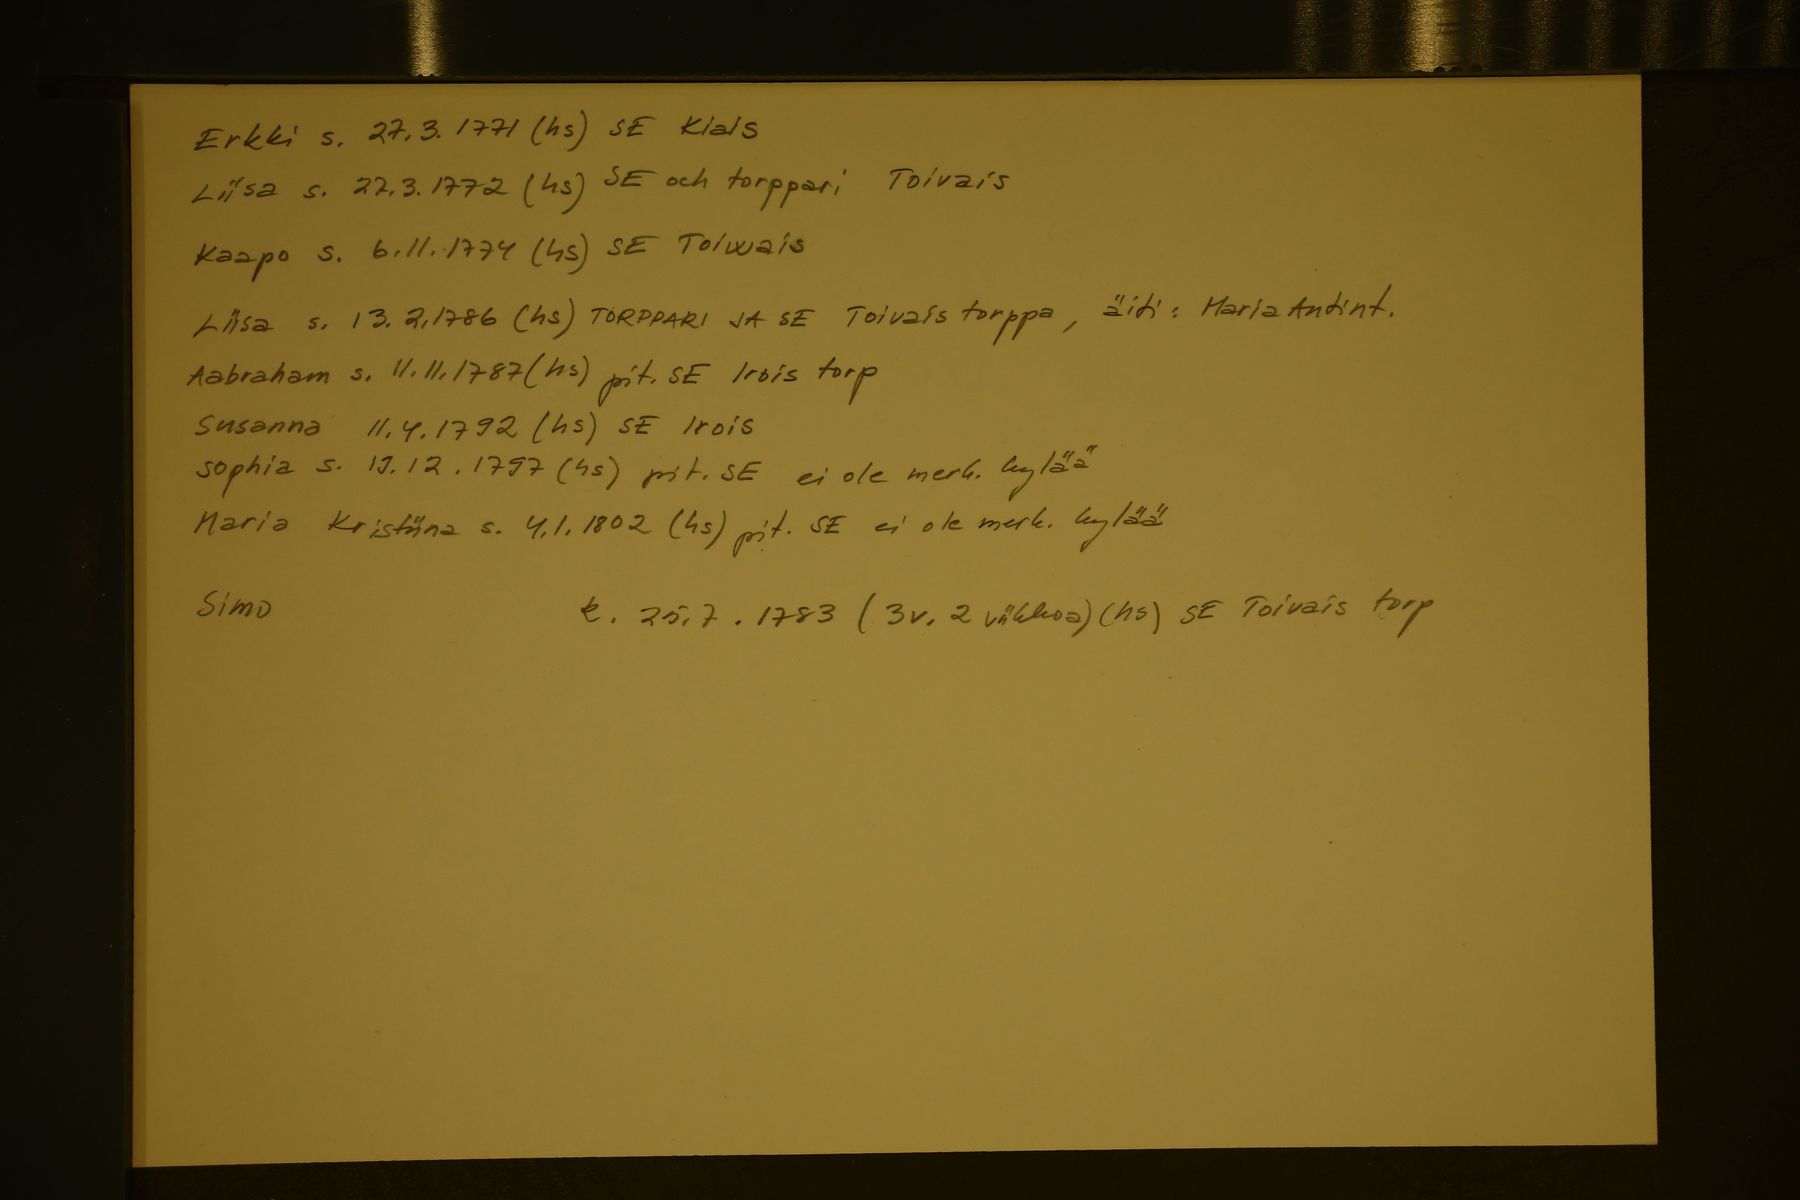 Erkki s. 27.3.1771 (hs) SE Kiais
Liisa s. 27.3.1772 (hs) SE och torppari Toivais
Kaapo s. 6.11.1774 (hs) SE Toiwais
Liisa s. 13.2.1786 (hs) TORPPARI JA SE Toivais torppa, äiti: Maria Antint.
Aabraham s. 11.11.1787 (hs) pit. SE Irois torp
Susanna 11.4.1792 (hs) SE Irois
Sophia s. 19.12.1797 (hs) pit. SE ei ole merk. kylää
Maria Kristiina s. 4.1.1802 (hs) pit. SE ei ole merk. kylää
Simo k. 25.7.1783 (3v. 2 viikkoa) (hs) SE Toivais torp